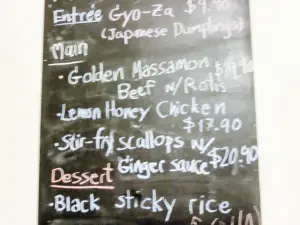 Entrée Gyo-Za $9.90
(Japanese Dumplings)
Main
·Golden Massamon
Beef w/Rotis
·Lemon Honey Chicken
$17.90
·Stir-fry scallops w/
Ginger sauce $20.90
Dessert
·Black sticky rice